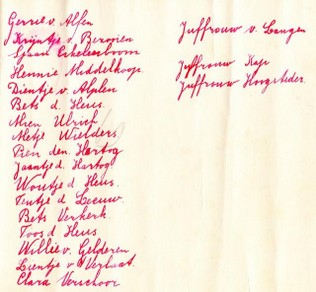 Gerrie v. Alfen
Krijntje v. Bergeijen
Sjaan Eikelenboom
Hennie Middelkoop.
Dientje v. Alphen
Bets d. Heus.
Alien Ulrich
Metje Wielders.
Pien den Hartog
Jaantje d. Hartog
Woutje d. Heus.
Teutje d. Leeuw.
Bets Verkerk.
Toos d Heus
Willie v. Gelderen
Lientje v. Verlaat.
Clara Verschoor
Juffrouw v. Langen
Juffrouw Kap
Juffrouw Hoogsteder.